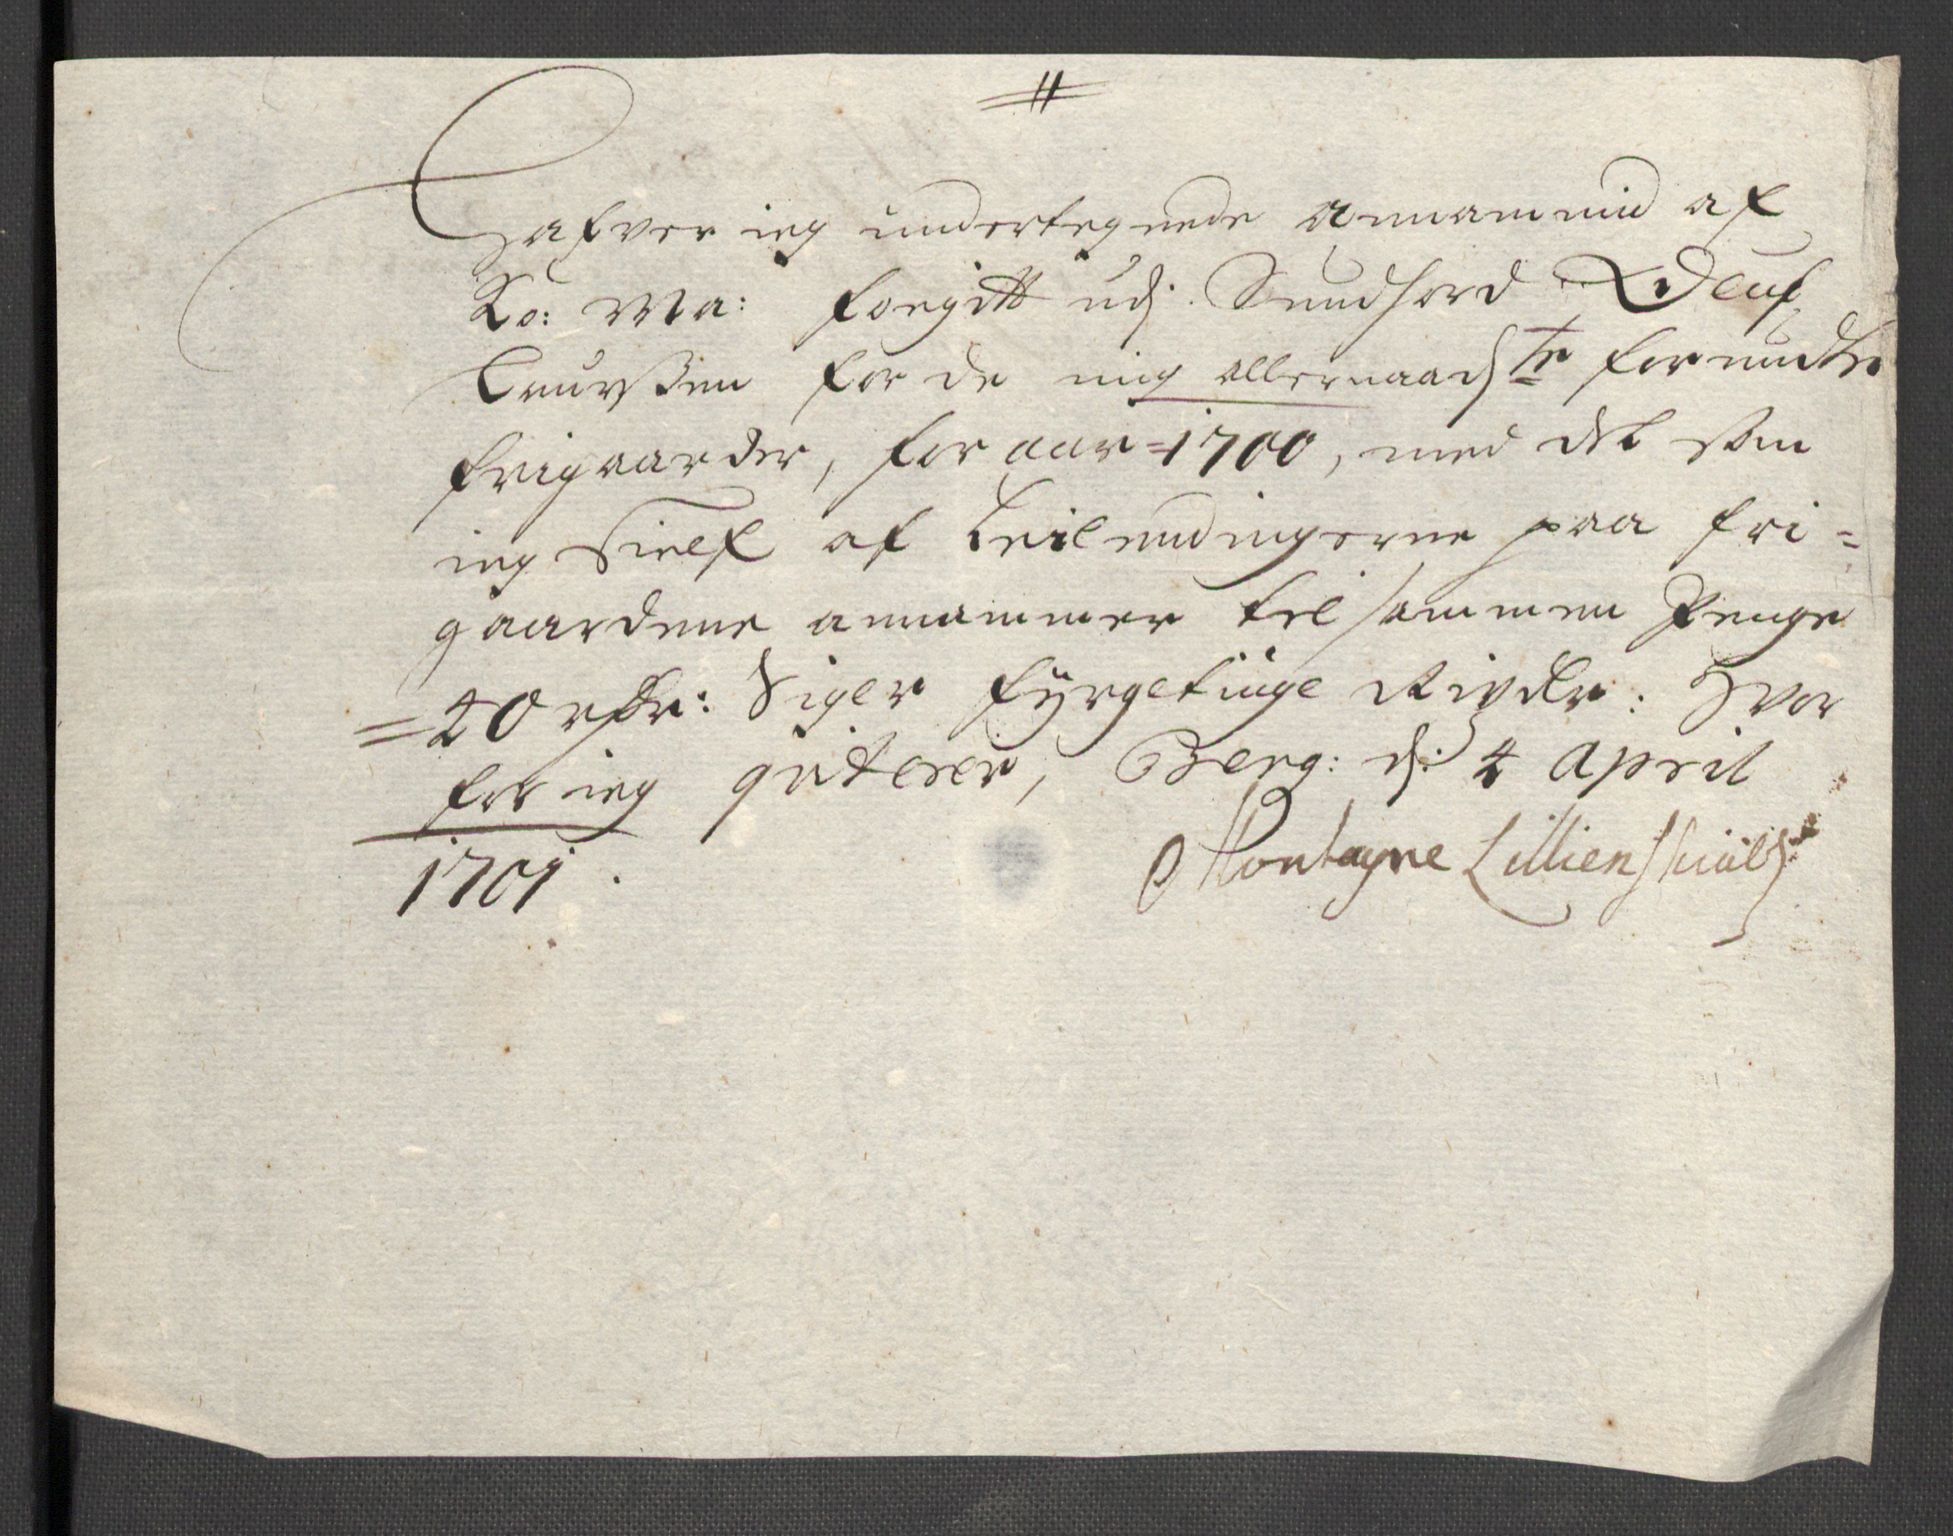 #
Hafver ieg undertegnede annammid af
Ko: Ma: fougitt udj Sundhord
Laurssen for de mig allernaadste forundte
frigaarder, for aar =1700, med det som
ieg Sielf af Leilendingerne paa fri=
gaardene annammer tilsammen Penge
=40 rdr: Siger fyrgetiuge Rixdlr: Hvor
for ieg qviterer, Berg: d: 4 April
1701.
Montagne Lillienskiold